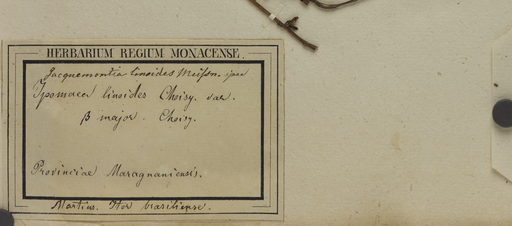 HERBARIUM REGIUM MONACENSE.
Jacquemontia linoides Meissn.
Ipomaea linoides Choisy. var.
β major. Choisy.
Provinciae Maragnaniensis.
Martius. Iter brasiliense.